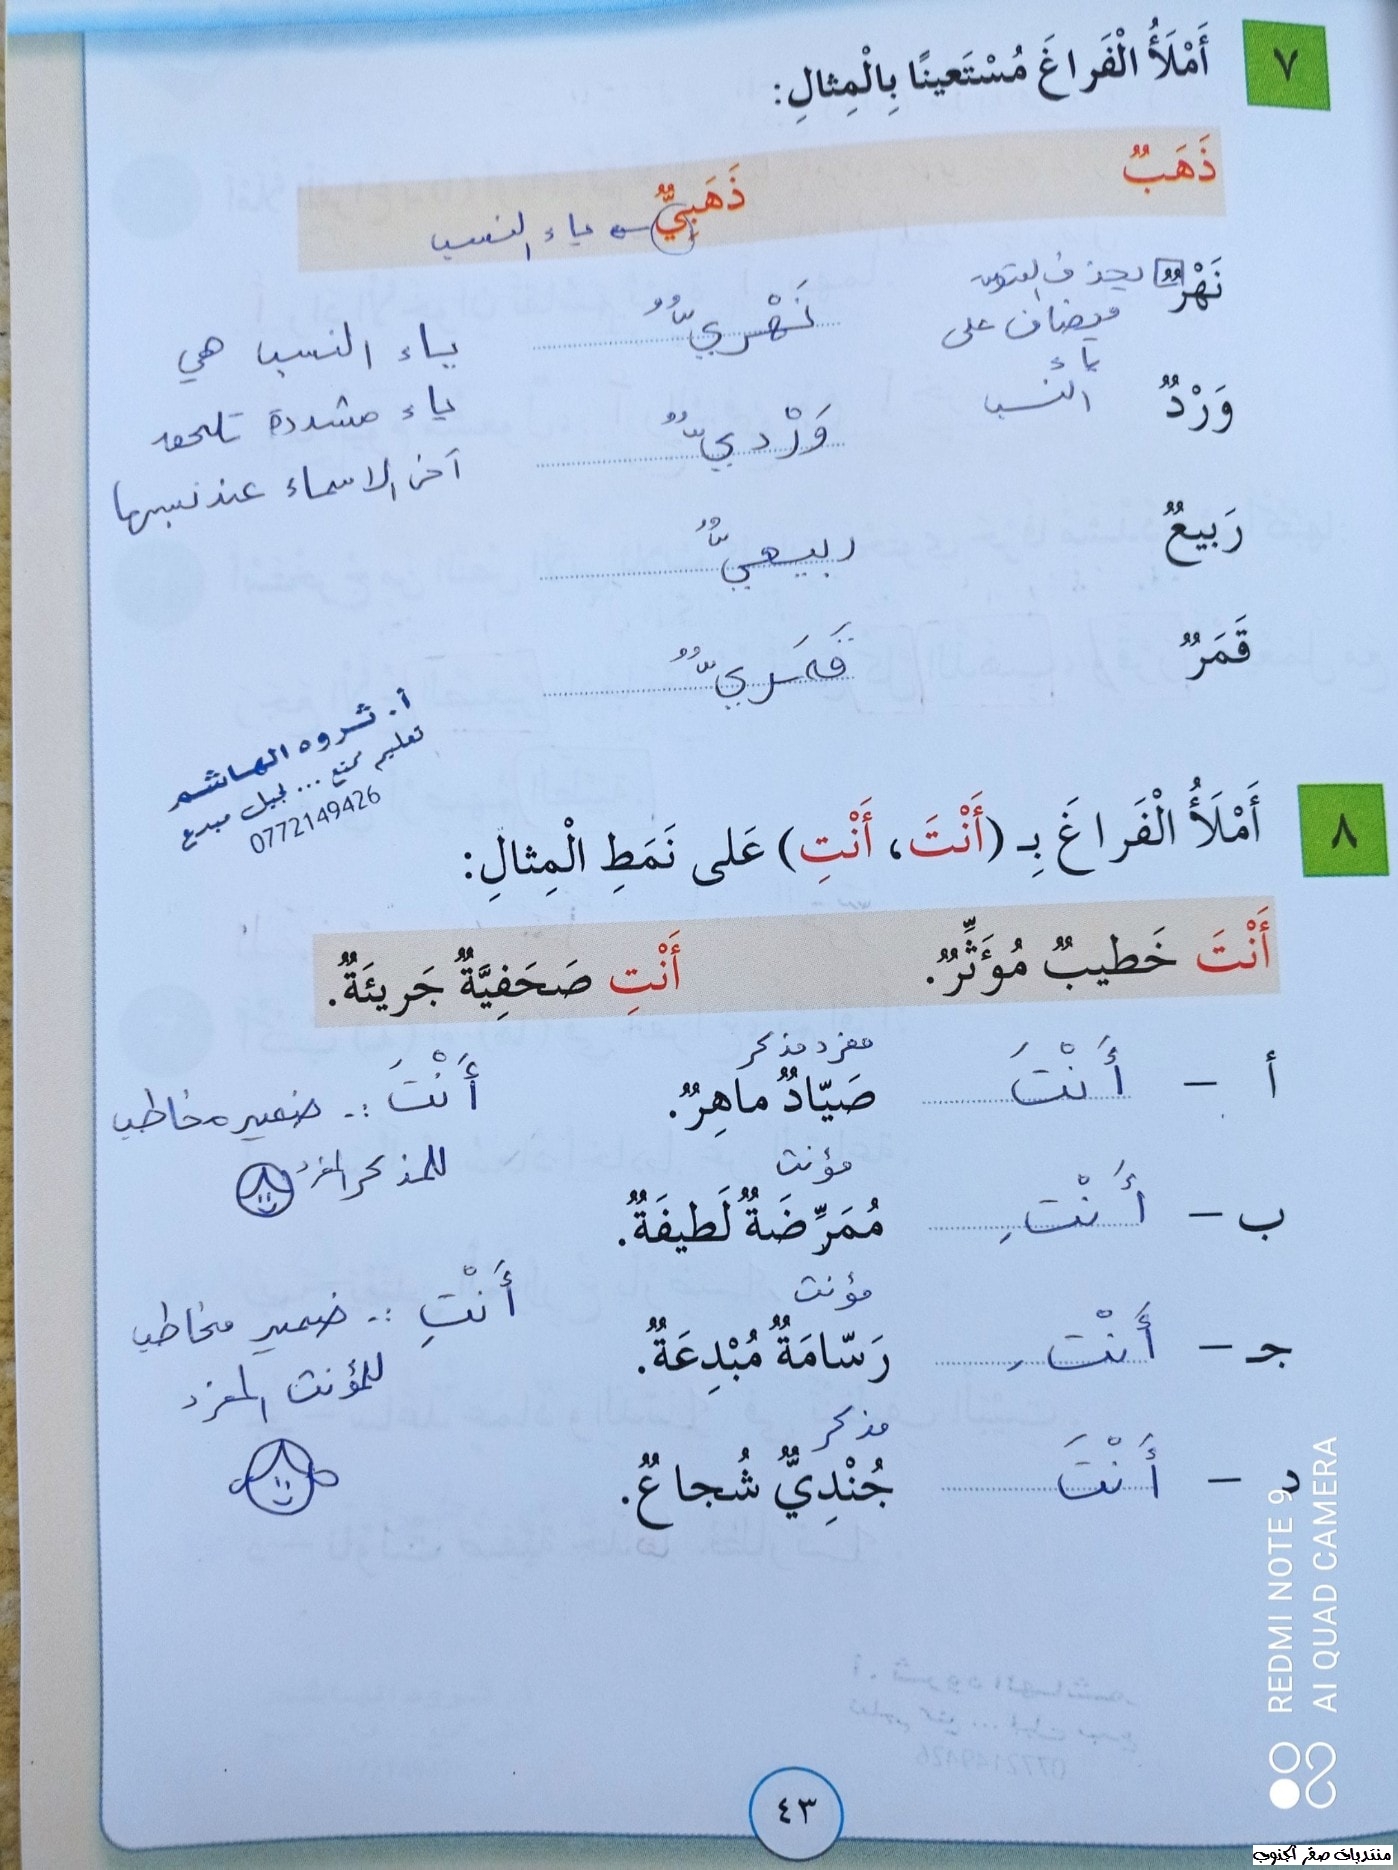 ٧ أَمْلَأُ الْفَراغَ مُسْتَعينًا بِالْمِثالِ:
ذَهَبٌ ذَهَبِيٌّ ياء النسب
نَهْرٌ يحذف التنوين نَهْريٌّ
ويضاف على
ياء
النسب
ياء النسب هي
ياء مشددة تلحق
آخر الاسماء عند نسبها
وَرْدٌ وَرْديٌّ
رَبيعٌ ربيعيٌّ
قَمَرٌ قَمَريٌّ
أ. ثروه الهاشم
تعليم ممتع ... لجيل مبدع
0772149426
٨ أَمْلَأُ الْفَراغَ بِـ (أَنْتَ، أَنْتِ) عَلى نَمَطِ الْمِثالِ:
أَنْتَ خَطيبٌ مُؤَثِّرٌ. أَنْتِ صَحَفِيَّةٌ جَريئَةٌ.
مفرد مذكر
أ – أَنْتَ صَيّادٌ ماهِرٌ.
أَنْتَ :. ضمير مخاطب
للمذكر المفرد
مؤنث
ب – أَنْتِ مُمَرِّضَةٌ لَطيفَةٌ.
مؤنث
جـ – أَنْتِ رَسّامَةٌ مُبْدِعَةٌ.
أَنْتِ :. ضمير مخاطب
للمؤنث المفرد
مذكر
د – أَنْتَ جُنْدِيٌّ شُجاعٌ.
٤٣
REDMI NOTE 9
AI QUAD CAMERA
منتديات صقر الجنوب